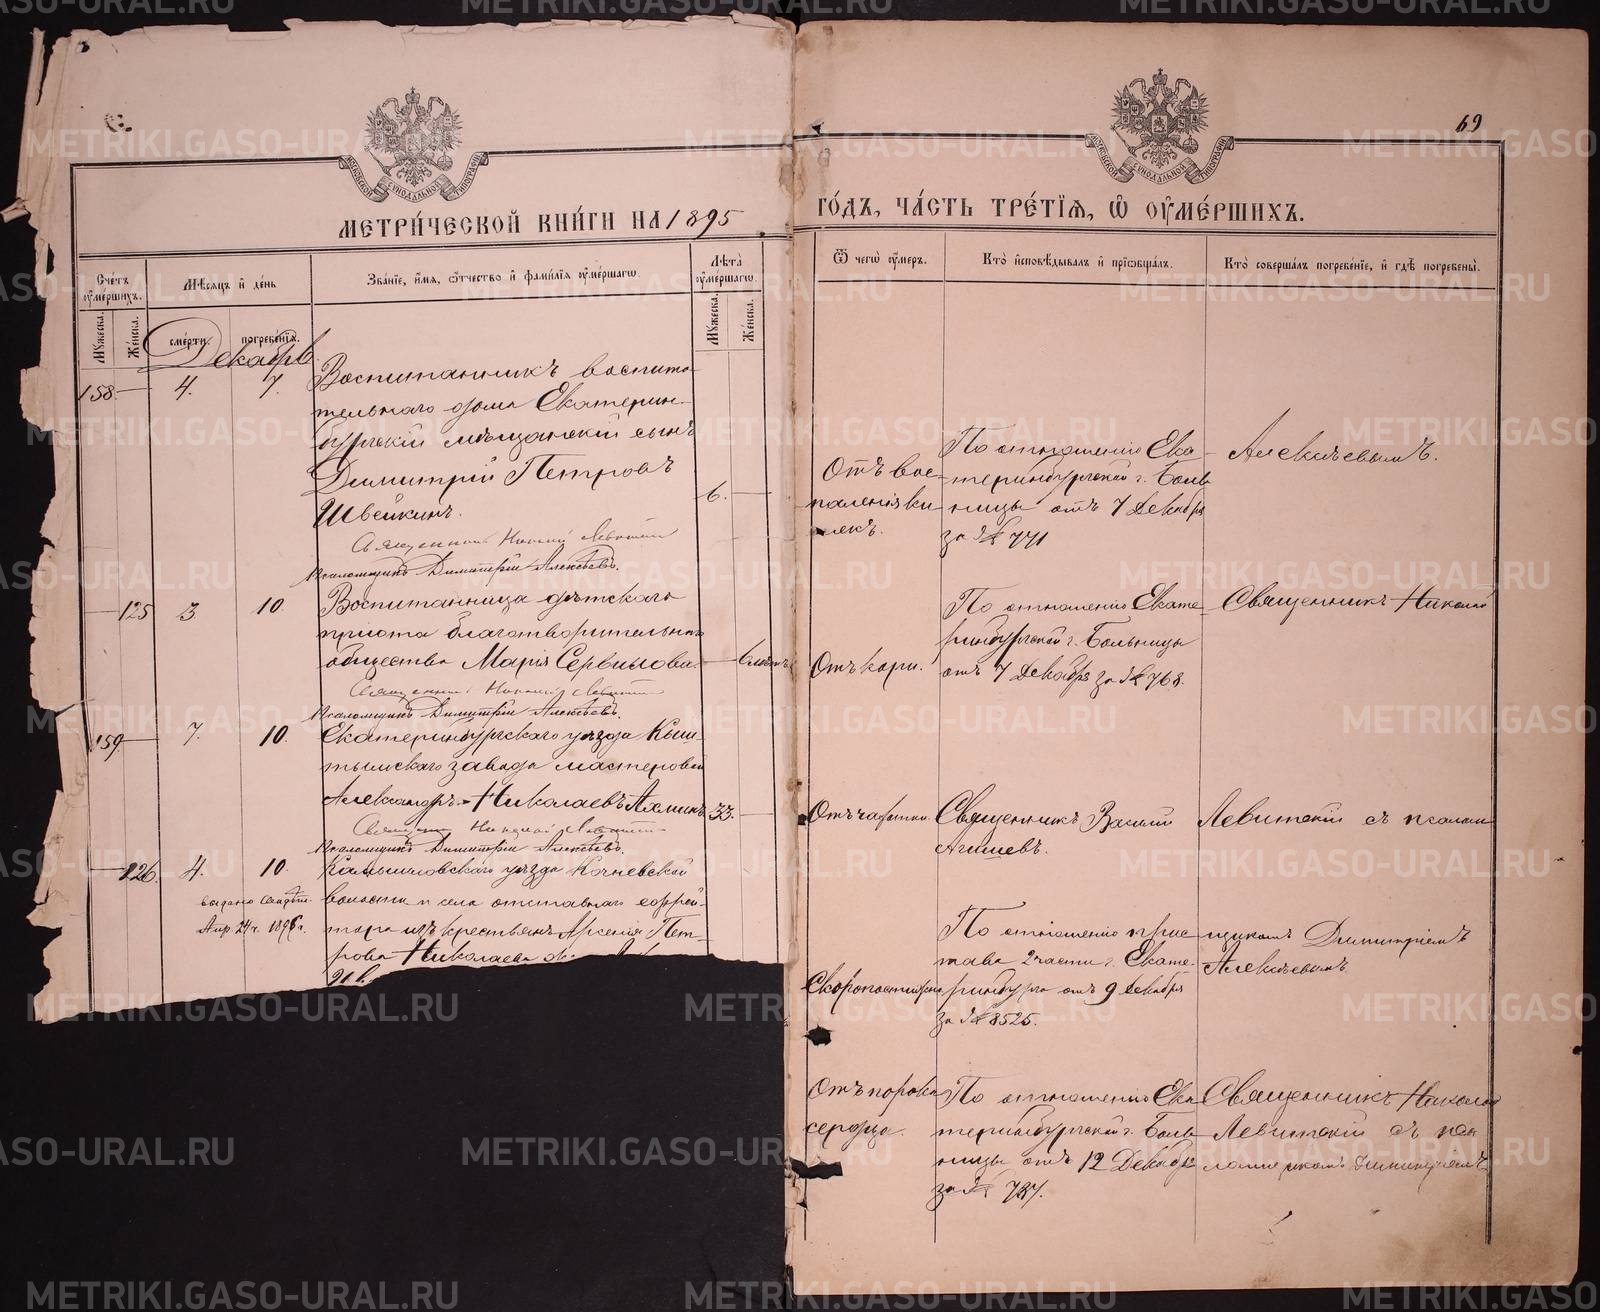 69
МОСКОВСКОЙ СѴНОДАЛЬНОЙ ТИПОГРАФІИ
МОСКОВСКОЙ СѴНОДАЛЬНОЙ ТИПОГРАФІИ
МЕТРИ́ЧЕСКОЙ КНИ́ГИ НА 1895
ГО́ДЪ, ЧА́СТЬ ТРЕ́ТІѦ, Ѡ҆ ОУ҆МЕ́РШИХЪ.
Сче́тъ оу҆ме́ршихъ.
Мꙋ́жеска.
Же́нска.
Мѣ́сѧцъ и҆ де́нь
сме́рти.
погребе́нїѧ.
Зва́нїе, и҆́мѧ, ѻ҆́тчество и҆ фами́лїѧ оу҆ме́ршагѡ.
Лѣ̀та оу҆ме́ршагѡ.
Мꙋ́жеска.
Же́нска.
Ѿ чегѡ̀ оу҆́меръ.
Кто̀ и҆сповѣ́дывалъ и҆ прїѡбща́лъ.
Кто̀ соверша́лъ погребе́нїе, и҆ гдѣ̀ погребены̀.
Декабрь
158. 4. 7. Воспитанникъ воспита-
тельнаго дома Екатерин-
бургскій мѣщанскій сынъ
Димитрій Петровъ
Швейкинъ. 6.
Священникъ Николай Левитскій
Псаломщикъ Димитрій Алексѣевъ.
Отъ вос-
паленія ки-
шекъ.
По отношенію Ека-
теринбургской г. Боль-
ницы отъ 7 Декабря
за № 771
Алексѣевымъ.
125 3 10. Воспитанница дѣтскаго
пріюта благотворительнаго
общества Марія
Священникъ Николай Левитскій
Псаломщикъ Димитрій Алексѣевъ.
Отъ кори.
По отношенію Екате-
ринбургской г. Больницы
отъ 7 Декабря за № 768.
Священникъ Николай
159 7. 10. Екатеринбургскаго уѣзда Кыш-
тымскаго завода мастеровой
Александръ Николаевъ 33.
Священникъ Николай Левитскій
Псаломщикъ Димитрій Алексѣевъ.
Отъ чахотки.
Священникъ Василій
Агишевъ.
Левитскій съ псалом-
126. 4. 10. Камышловскаго уѣзда Кочневской
волости и села отставнаго ефрей-
тора изъ крестьянъ Арсенія Пет-
рова Николаева
выдано свидѣт.
Апр. 24 г. 1896 г.
Скоропостижно
По отношенію прис-
тава 2 части г. Екате-
ринбурга отъ 9 Декабря
за № 8525.
щикомъ Димитріемъ
Алексѣевымъ
Отъ порока
сердца.
По отношенію Ека-
теринбургской г. Боль-
ницы отъ 12 Декабря
за № 787.
Священникъ Николай
Левитскій съ пса-
ломщикомъ Димитріемъ
METRIKI.GASO-URAL.RU